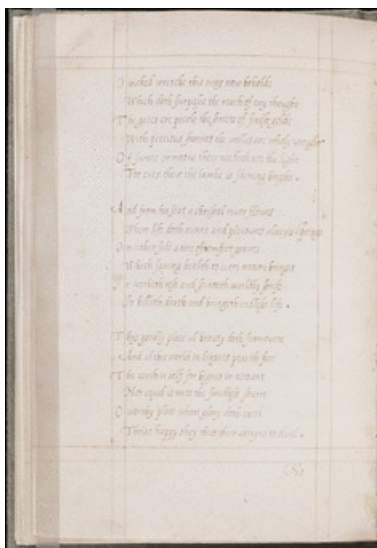 O wicked this eyes now beholde
Which doth surpasse the reach of any thought
The gates are pearle the streets of finest golde
With precious stones the walles are wholy wrought
Of sunne or moone there needeth not the light
For ever there the lambe is shining bright.
And from his seat a christall river flowes
Where life doth runne and pleasures alwayes springe
On either side a tree of comfort growes
Which saving health to every nation bringes
It worketh and worldly
It killeth death and bringeth endles life.
This goodly place all beauty doth surmount
And all the world in biggnes passeth far
The earth it self for bignes in account
Not equal is unto the smallest starre
O worthy place where glory doth excel
Thrise happy they that there attayne to dwell.